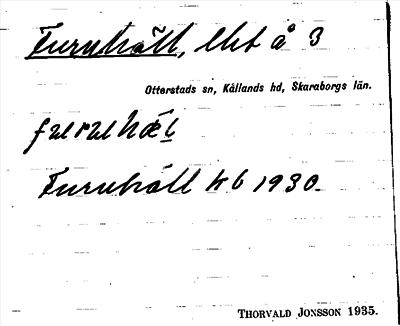 Furuhäll, lht å 3
Otterstads sn, Kållands hd, Skaraborgs län.
Furuhäll kb 1930.
THORVALD JONSSON 1935.